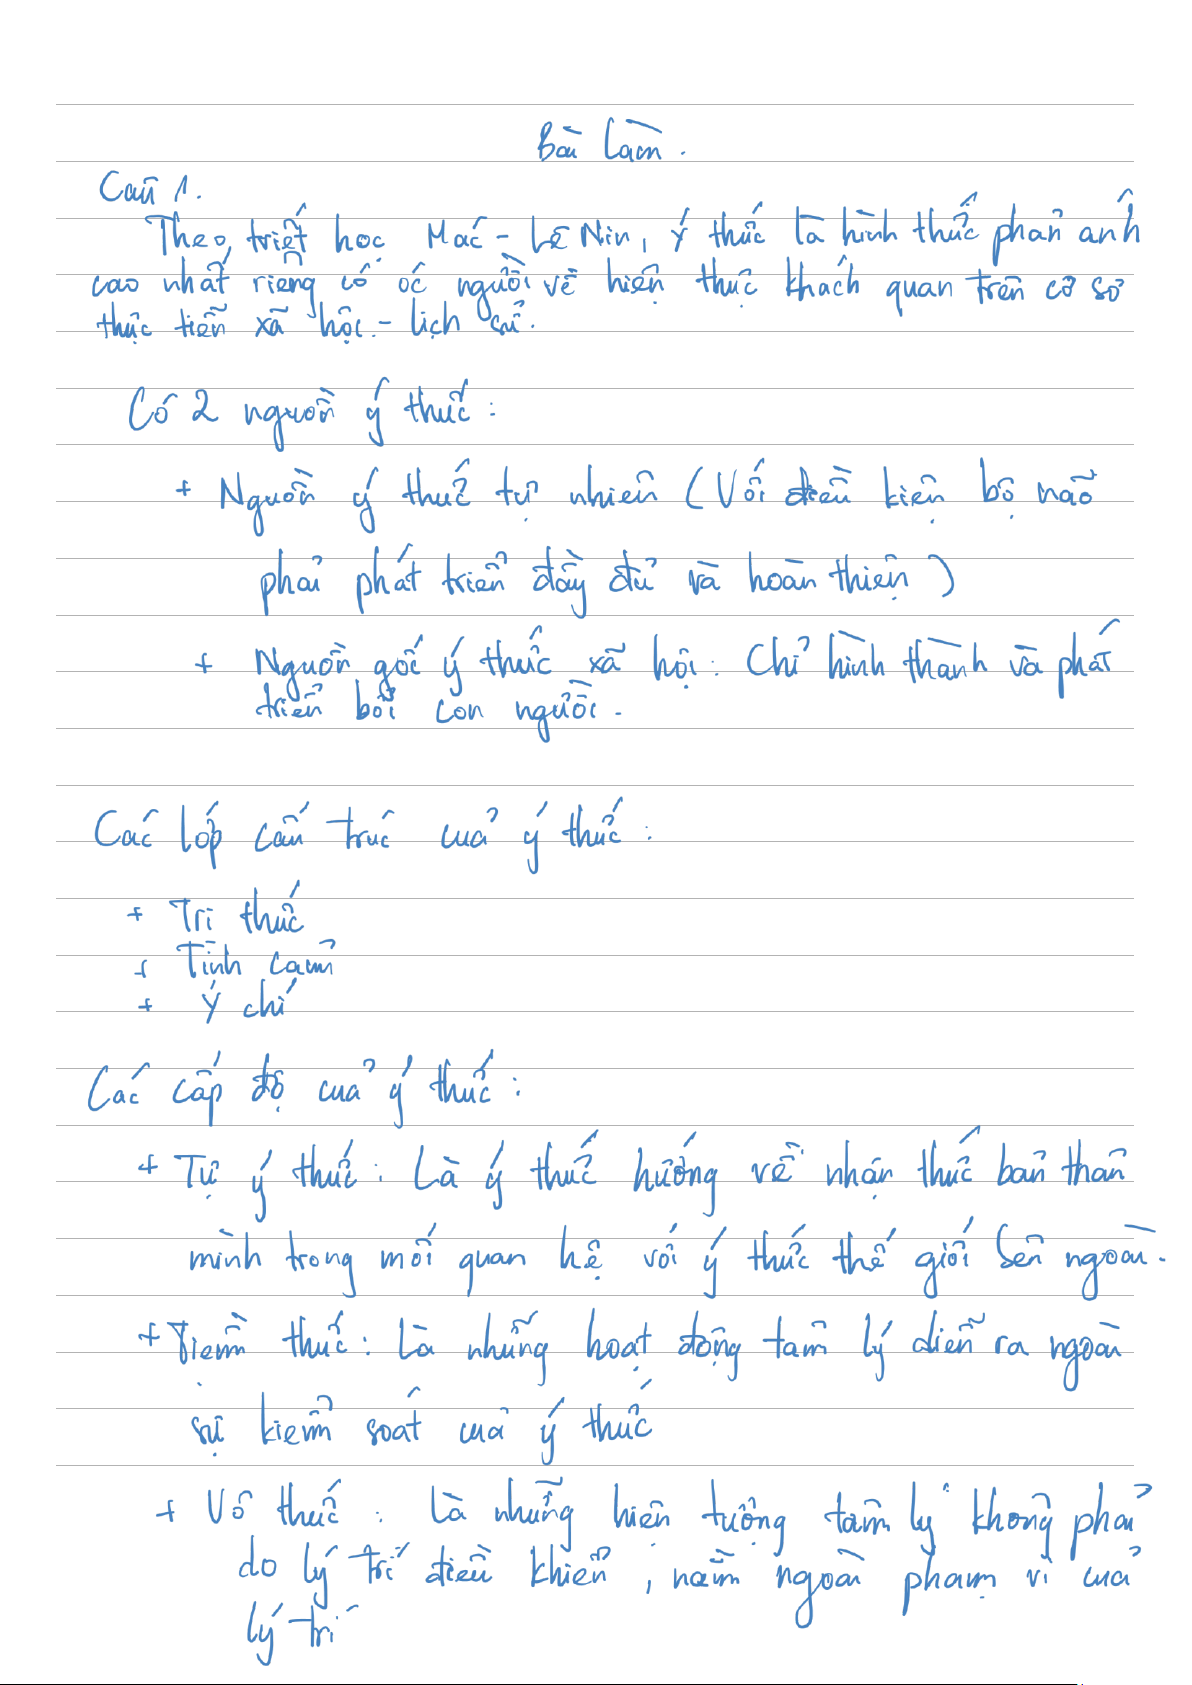 Bài làm.
Câu 1.
Theo, triết học Mác - Lê Nin, ý thức là hình thức phản ánh
cao nhất riêng có óc người về hiện thực khách quan trên cơ sở
thực tiễn xã hội - lịch sử.
Có 2 nguồn ý thức :
+ Nguồn ý thức tự nhiên ( Với điều kiện bộ não
phải phát triển đầy đủ và hoàn thiện )
+ Nguồn gốc ý thức xã hội : Chỉ hình thành và phát
triển bởi con người.
Các lớp cấu trúc của ý thức :
+ Tri thức
+ Tình cảm
+ Ý chí
Các cấp độ của ý thức :
+ Tự ý thức : Là ý thức hướng về nhận thức bản thân
mình trong mối quan hệ với ý thức thế giới bên ngoài.
+ Tiềm thức : Là những hoạt động tâm lý diễn ra ngoài
sự kiểm soát của ý thức
+ Vô thức : Là những hiện tượng tâm lý không phải
do lý trí điều khiển , nằm ngoài phạm vi của
lý trí